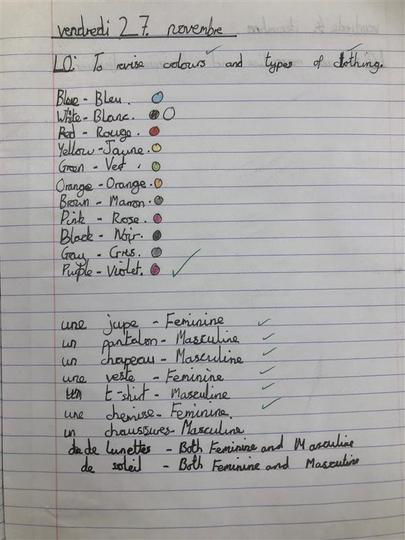 vendredi 27 novembre
LO: To revise colours and types of clothing.
Blue - Bleu.
White - Blanc.
Red - Rouge.
Yellow - Jaune.
Green - Vert.
Orange - Orange.
Brown - Marron.
Pink - Rose.
Black - Noir.
Gray - Gris.
Purple - Violet.
une jupe - Feminine
un pantalon - Masculine
un chapeau - Masculine
une veste - Feminine
un t-shirt - Masculine
une chemise - Feminine.
un chaussures - Masculine
de lunettes - Both Feminine and Masculine
de soleil - Both Feminine and Masculine